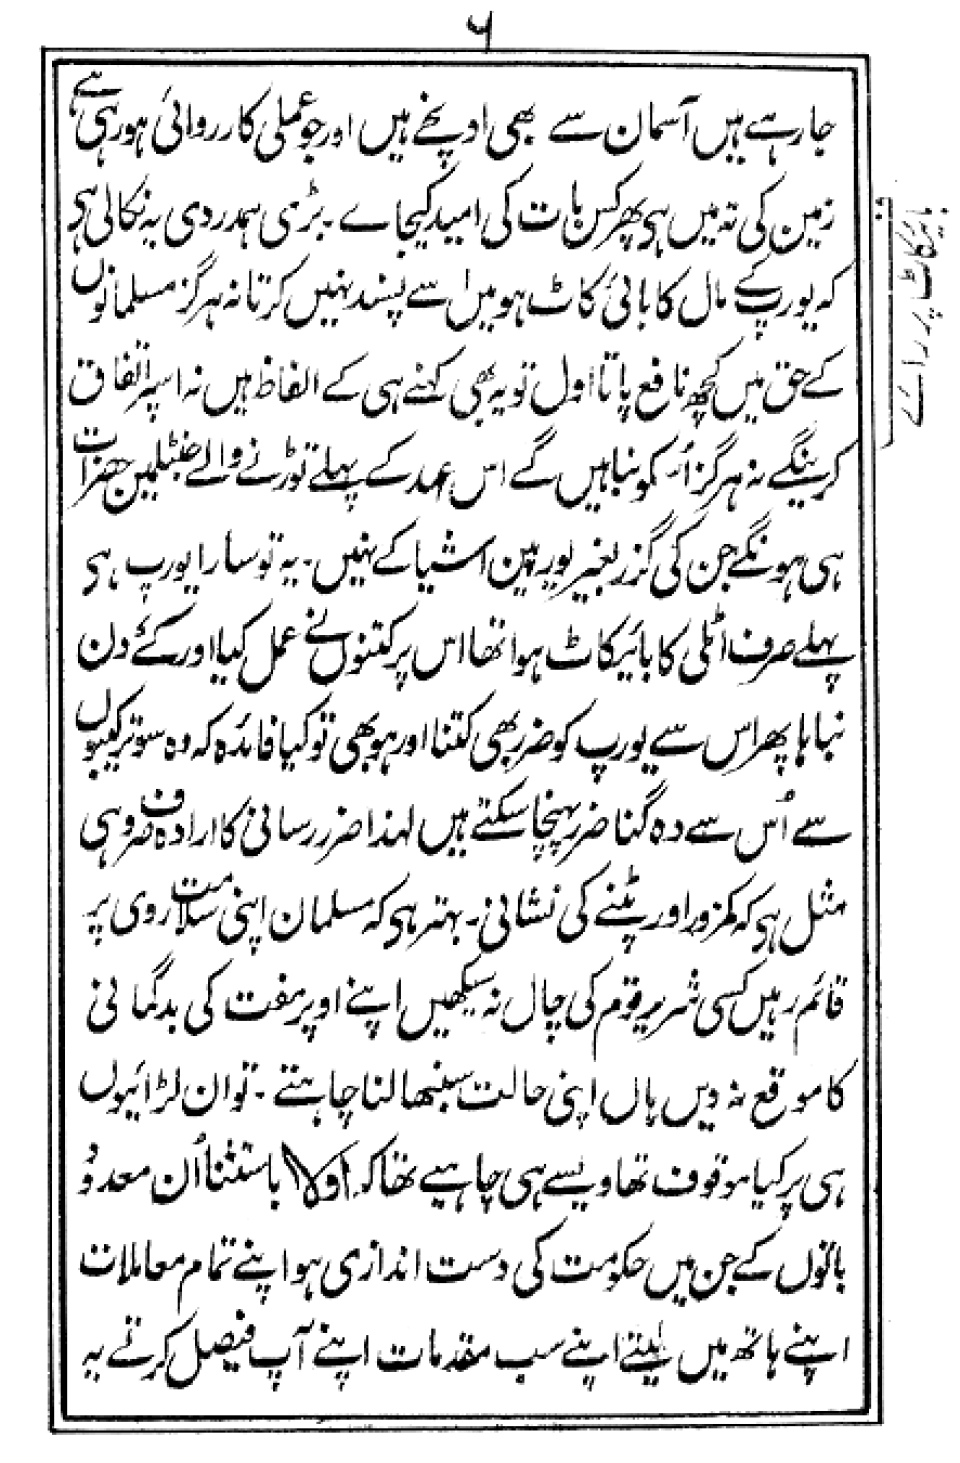 ۶
جارہے ہیں آسمان سے بھی اونچے ہیں اور جو عملی کارروائی ہورہی ہے
زمین کی تہ میں ہی پھر کس بات کی امید کیجاے ۔ بڑی ہمدردی یہ نکالی ہی
کہ یورپ کے مال کا بائی کاٹ ہو میں اسے پسند نہیں کرتا نہ ہرگز مسلمانوں
کے حق میں کچھ نافع پاتا اول تو یہ بھی کہنے ہی کے الفاظ ہیں نہ اسپر اتفاق
کرینگے نہ ہرگز اُس کو نباہیں گے اس عہد کے پہلے توڑنے والے جنٹلمین حضرات
ہی ہونگے جن کی گزر بغیر یورپین اشیا کے نہیں ۔ یہ تو سارا یورپ ہی
پہلے صرف اٹلی کا بائیکاٹ ہوا تھا اس پر کتنوں نے عمل کیا اور کے دن
نباہا پھر اس سے یورپ کو ضرر بھی کتنا اور ہو بھی تو کیا فائدہ کہ وہ سو ترکیبوں
سے اُس سے دہ گنا ضرر پہنچا سکتے ہیں لہذا ضرر رسانی کا ارادہ صرف وہی
مثل ہی کہ کمزور اور پٹنے کی نشانی ۔ بہتر ہی کہ مسلمان اپنی سلامت روی پر
قائم رہیں کسی شریر قوم کی چال نہ سیکھیں اپنے اوپر مفت کی بدگمانی
کا موقع نہ دیں ہاں اپنی حالت سنبھالنا چاہتے ۔ تو ان لڑائیوں
ہی پر کیا موقوف تھا ویسے ہی چاہیے تھا کہ اولاً باستثنا اُن معدود
باتوں کے جن میں حکومت کی دست اندازی ہو اپنے تمام معاملات
اپنے ہاتھ میں لیتے اپنے سب مقدمات اپنے آپ فیصل کرتے یہ
بائیکاٹ پر راے